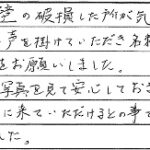 壁の破損した所が気
声を掛けていただき名刺
をお願いしました。
写真を見て安心してお
に来ていただけるとの事で
した。